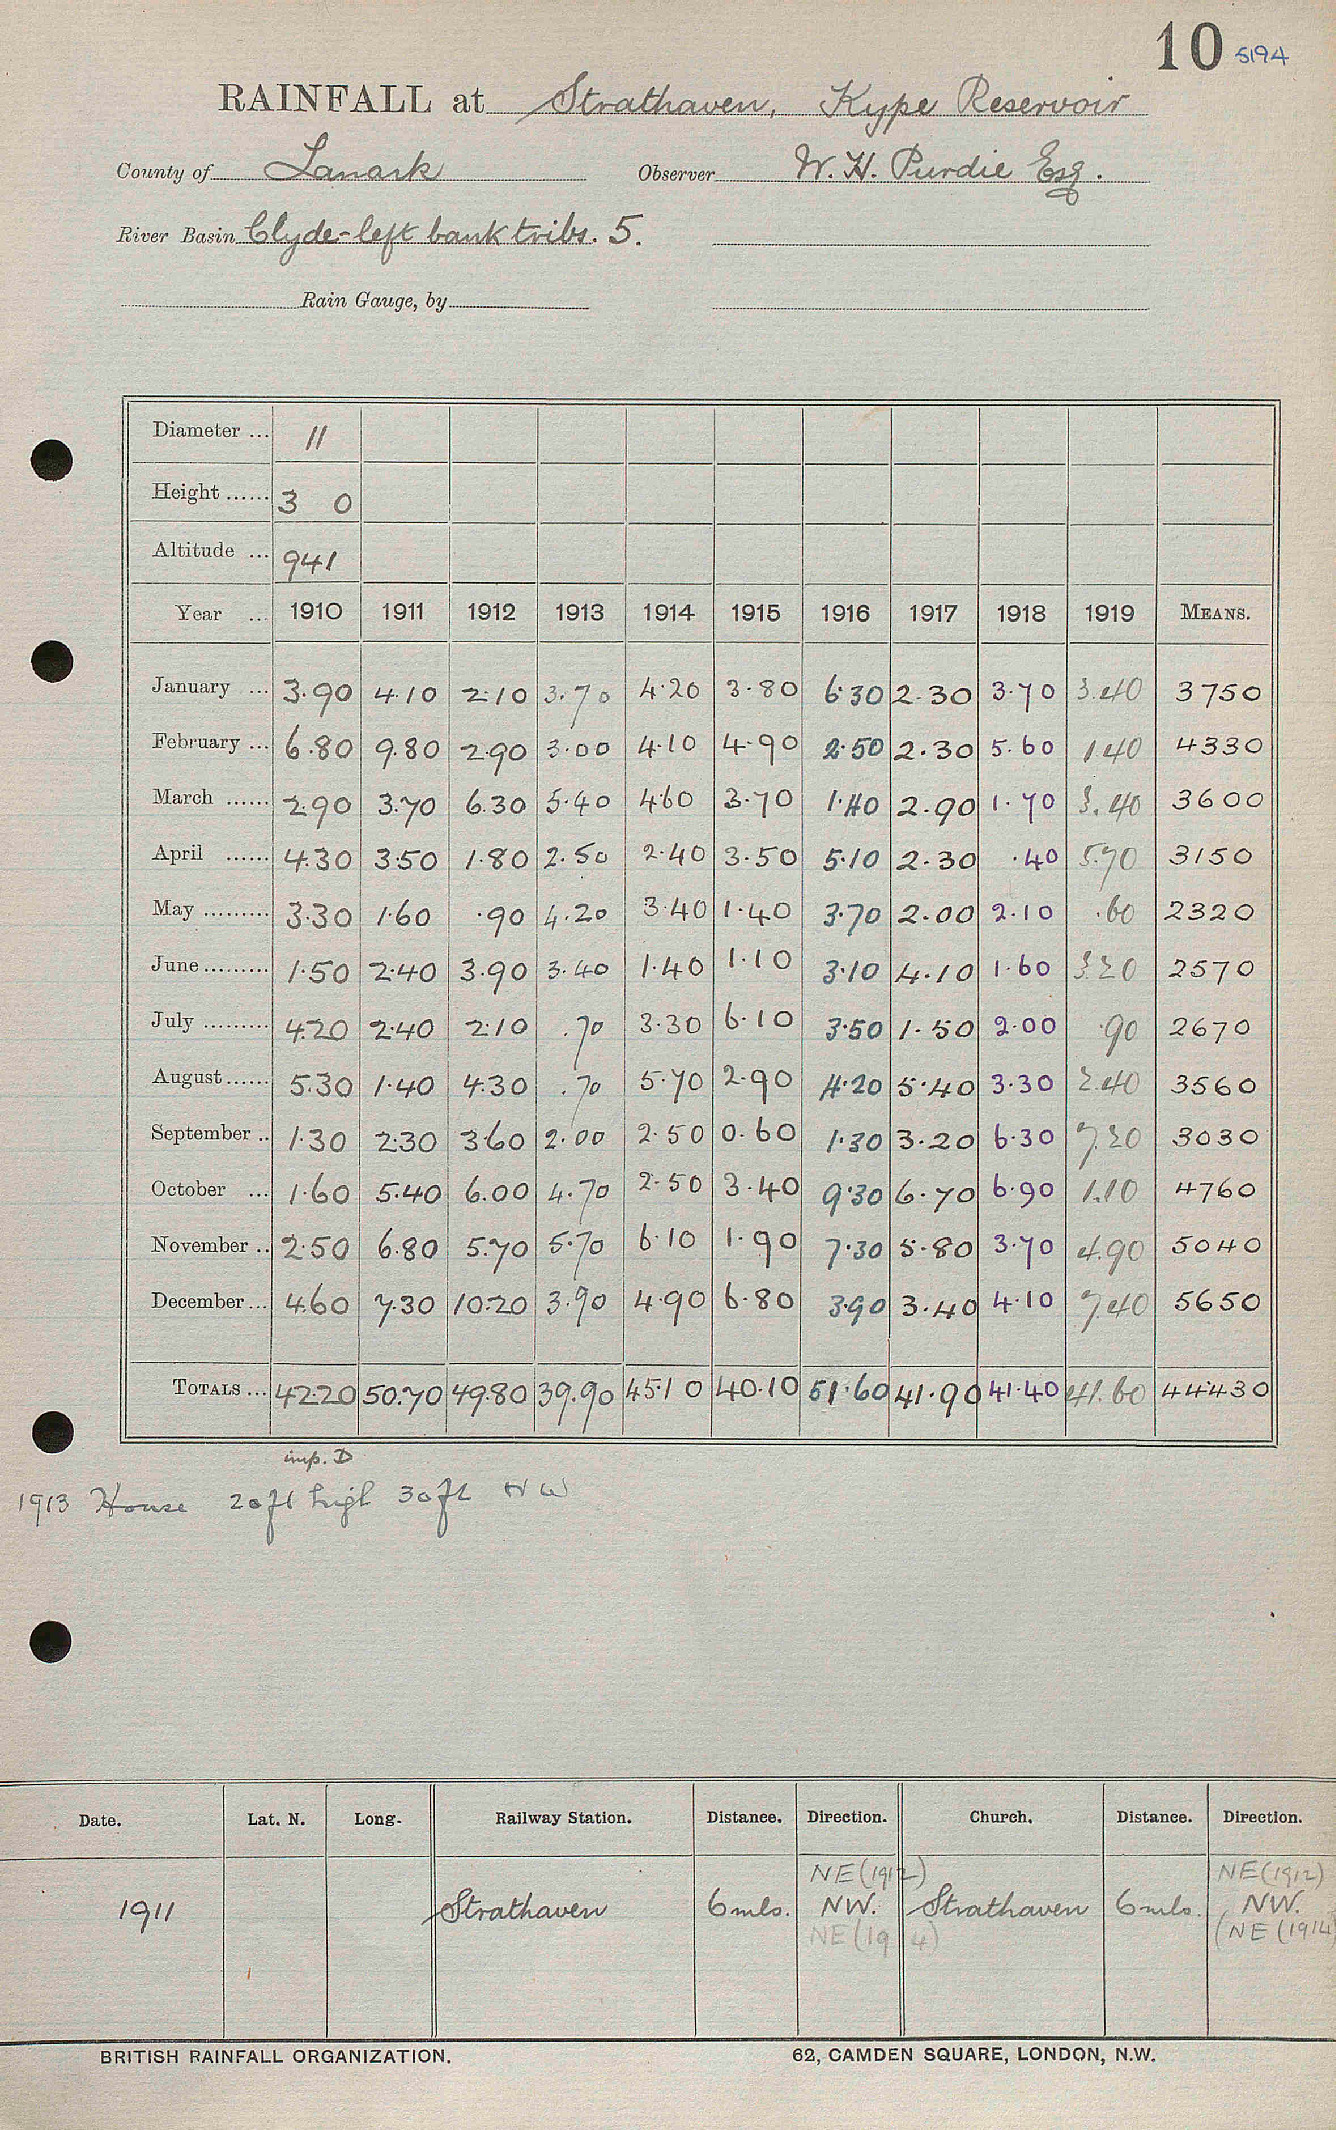 10 5194
RAINFALL at Strathaven, Kype Reservoir
County of Lanark Observer W. H. Purdie Esq.
River Basin Clyde-left bank tribs. 5.
Rain Gauge, by
Diameter ... 11
Height ...... 3 0
Altitude ... 941
Year ... 1910 1911 1912 1913 1914 1915 1916 1917 1918 1919 MEANS.
January ... 3.90 4.10 2.10 3.70 4.20 3.80 6.30 2.30 3.70 3.40 3750
February ... 6.80 9.80 2.90 3.00 4.10 4.90 2.50 2.30 5.60 1.40 4330
March ...... 2.90 3.70 6.30 5.40 4.60 3.70 1.40 2.90 1.70 3.40 3600
April ...... 4.30 3.50 1.80 2.50 2.40 3.50 5.10 2.30 .40 5.70 3150
May ......... 3.30 1.60 .90 4.20 3.40 1.40 3.70 2.00 2.10 .60 2320
June ......... 1.50 2.40 3.90 3.40 1.40 1.10 3.10 4.10 1.60 3.20 2570
July ......... 4.20 2.40 2.10 .70 3.30 6.10 3.50 1.50 2.00 .90 2670
August ...... 5.30 1.40 4.30 .70 5.70 2.90 4.20 5.40 3.30 2.40 3560
September .. 1.30 2.30 3.60 2.00 2.50 0.60 1.30 3.20 6.30 7.20 3030
October ... 1.60 5.40 6.00 4.70 2.50 3.40 9.30 6.70 6.90 1.10 4760
November .. 2.50 6.80 5.70 5.70 6.10 1.90 7.30 5.80 3.70 4.90 5040
December ... 4.60 7.30 10.20 3.90 4.90 6.80 3.90 3.40 4.10 7.40 5650
TOTALS ... 42.20 50.70 49.80 39.90 45.10 40.10 51.60 41.90 41.40 41.60 44430
imp. D
1913 House 20ft high 30ft NW
Date. Lat. N. Long. Railway Station. Distance. Direction. Church. Distance. Direction.
NE (1912) NE (1912)
1911 Strathaven 6 mls. NW. Strathaven 6 mls. NW.
NE (1914) (NE (1914)
BRITISH RAINFALL ORGANIZATION. 62, CAMDEN SQUARE, LONDON, N.W.